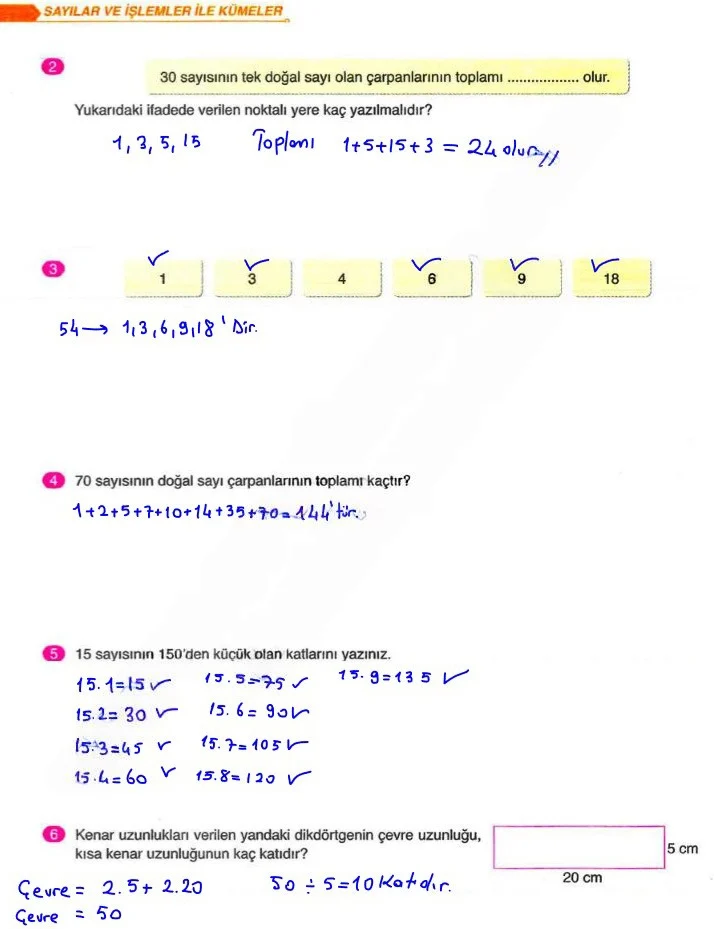 SAYILAR VE İŞLEMLER İLE KÜMELER
2
30 sayısının tek doğal sayı olan çarpanlarının toplamı .................. olur.
Yukarıdaki ifadede verilen noktalı yere kaç yazılmalıdır?
1, 3, 5, 15 Toplamı 1+5+15+3 = 24 olur.
3
1 3 4 6 9 18
54→ 1,3,6,9,18' Dir.
4 70 sayısının doğal sayı çarpanlarının toplamı kaçtır?
1+2+5+7+10+14+35+70=144'tür.
5 15 sayısının 150'den küçük olan katlarını yazınız.
15.1=15 ✓ 15.5=75 ✓ 15.9=135 ✓
15.2=30 ✓ 15.6=90 ✓
15.3=45 ✓ 15.7=105 ✓
15.4=60 ✓ 15.8=120 ✓
6 Kenar uzunlukları verilen yandaki dikdörtgenin çevre uzunluğu,
kısa kenar uzunluğunun kaç katıdır?
5 cm
20 cm
Çevre = 2.5+ 2.20 50 ÷ 5=10 Katıdır.
Çevre = 50